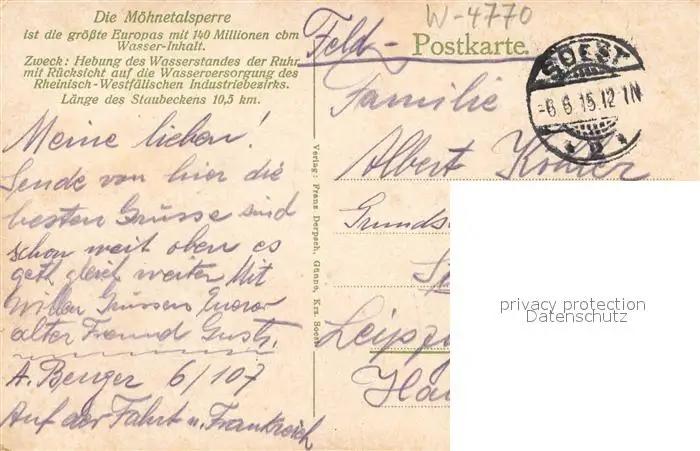 Die Möhnetalsperre
ist die größte Europas mit 140 Millionen cbm
Wasser-Inhalt.
Zweck: Hebung des Wasserstandes der Ruhr
mit Rücksicht auf die Wasserversorgung des
Rheinisch-Westfälischen Industriebezirks.
Länge des Staubeckens 10,5 km.
Meine lieben!
Sende von hier die
besten Grüsse sind
schon weit oben es
geht gleich weiter Mit
Grüssen Euer
alter Freund
A. Berger 6/107
Auf der Fahrt n. Frankreich
Verlag: Franz Derpsch, Günne, Krs. Soest
W-4770
Feld-Postkarte.
SOEST
-6.6.15.12-1N
Familie
Albert Kohler
Leipzig
privacy protection
Datenschutz